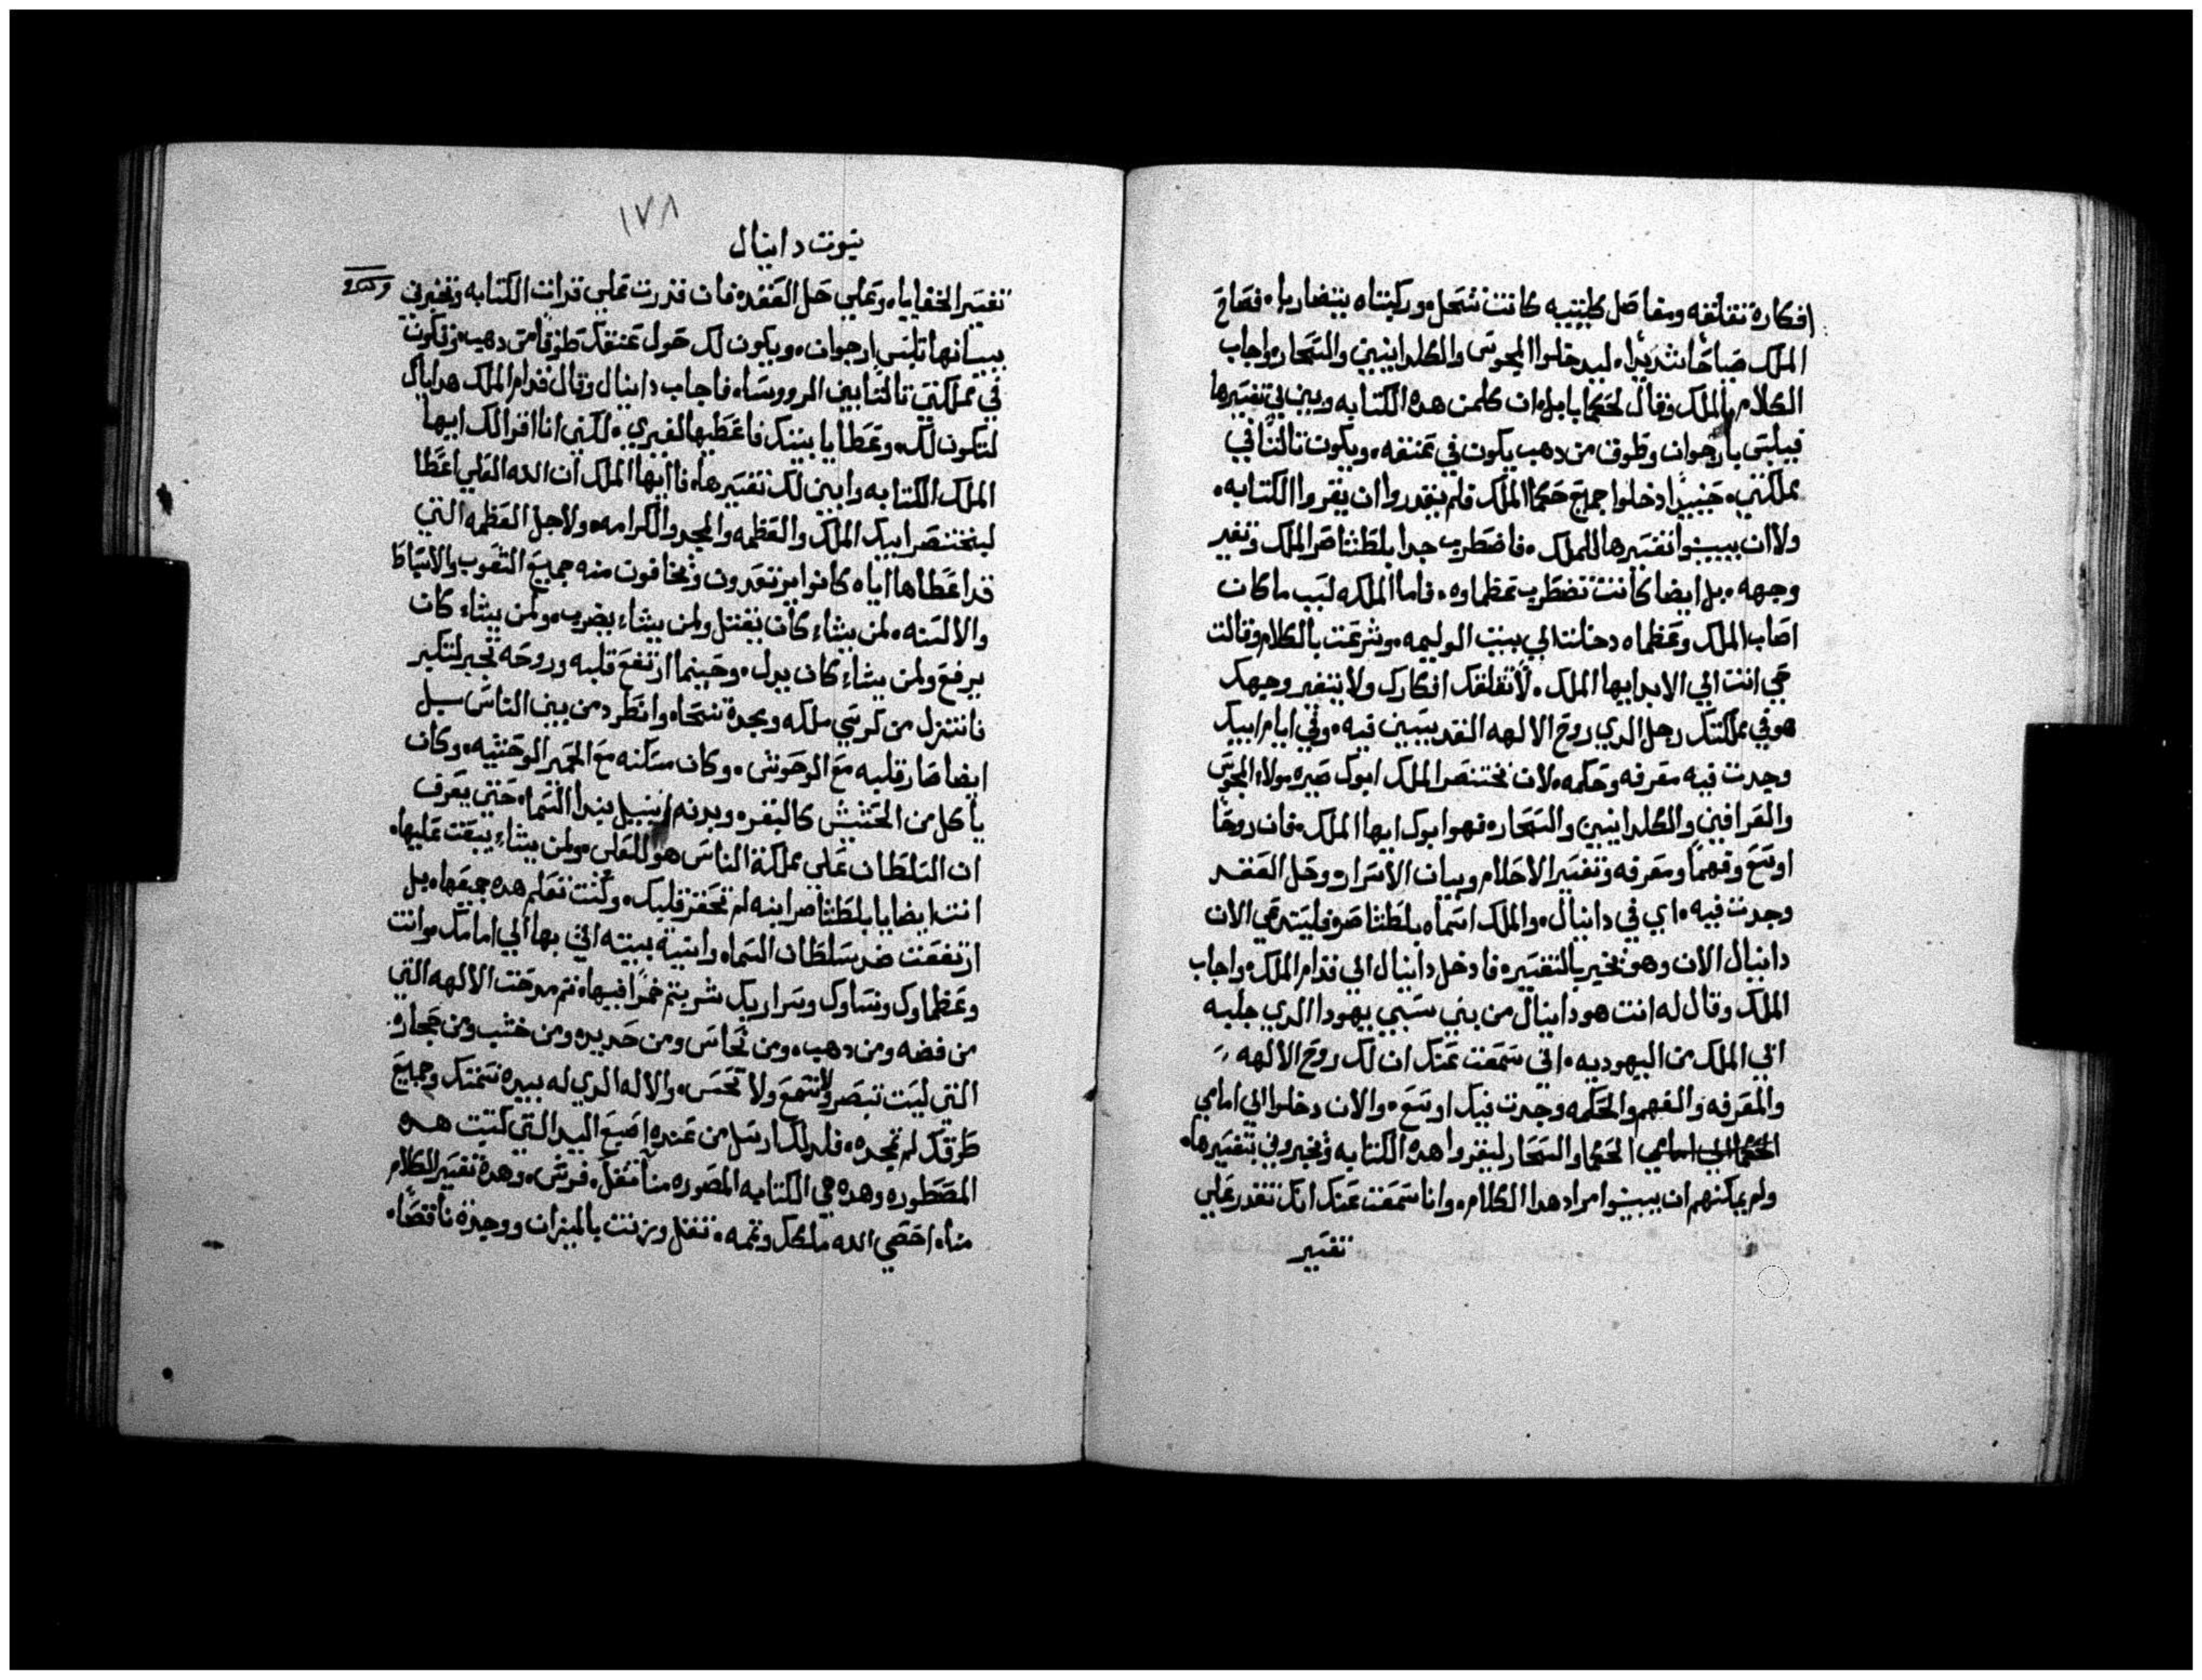 افكاره تقلقه ومفاصل كليتيه كانت تنحل وركبتاه يتضاربا. فصاح
الملك صياحًا شديدًا. ليدخلوا المجوس والكلدانيين والسحار واجاب
الكلام الملك وقال لحكما بابل. ان كلمن هده الكتابه ويبين لي تفسيرها
فيلبس بارجوان وطوق من دهب يكون في عنقه. ويكون تالتًا في
مملكتي. حينيدا دخلوا جميع حكما الملك فلم يقدروا ان يقروا الكتابه.
ولا ان يبينوا تفسيرها للملك. فاضطرب جدا بلطشاصر الملك وتغير
وجهه. بل ايضا كانت تضطرب عظماوه. فاما الملكه لسبب ما كان
اصاب الملك وعظماه دخلت الي بيت الوليمه. وشرعت بالكلام وقالت
حي انت الي الابد ايها الملك. لا تقلقك افكارك ولا يتغير وجهك
هو في مملكتك رجل الدي روح الالهه القديسين فيه. وفي ايام ابيك
وجدت فيه معرفه وحكمه. لان بختنصر الملك ابوك صيره مولاء المجوس
والعرافين والكلدانيين والسحاره فهو ابوك ايها الملك. فان روحًا
اوسع وفهمًا ومعرفه وتفسير الاحلام وبيان الاسرار وحل العقد
وجدت فيه. اي في دانيال. والملك اسماه بلطشاصر فليستدعي الان
دانيال الان وهو يخبر بالتفسير. فادخل دانيال الي قدام الملك. واجاب
الملك وقال له انت هو دانيال من بني سبي يهودا الدي جلبه
ابي الملك من اليهوديه. اني سمعت عنك ان لك روح الالهه
والمعرفه والفهم والحكمه وجدت فيك اوسع. والان دخلوا الي امامي
الحكما الي امامي الحكما والسحار ليقروا هده الكتابه ويخبروني بتفسيرها.
ولم يمكنهم ان يبينوا مراد هدا الكلام. وانا سمعت عنك انك تقدر علي
تفسير
١٧٨
نبوت دانيال
تفسير الخفايا. وعلي حل العقد. فان قدرت علي قرات الكتابه وتخبرني
ببيانها تلبس ارجوان. ويكون لك حول عنقك طوقًا من دهب. وتكون
في مملكتي تالتًا بين الرووسا. فاجاب دانيال وقال قدام الملك هداياك
لتكون لك. وعطايا بيتك فاعطيها لغيري. لكني انا اقرا لك ايها
الملك الكتابه وابين لك تفسيرها. فا ايها الملك ان الله العلي اعطا
لبختنصر ابيك الملك والعظمه والمجد والكرامه. ولاجل العظمه التي
قد اعطاها اياه كانوا يرتعدون ويخافون منه جميع الشعوب والاسباط
والالسنه. لمن يشاء كان يقتل ولمن يشاء يضرب. ولمن يشاء كان
يرفع ولمن يشاء كان يدل. وحينما ارتفع قلبه وروحه تجبر لتكبر
فانتزل من كرسي ملكه ومجده نتحا. وانطرد من بين الناس بل
ايضا صار قلبه مع الوحوش. وكان مسكنه مع الحمير الوحشيه. وكان
ياكل من الحشيش كالبقر. وبدنه انبل بندا السما. حتي يعرف
ان السلطان علي مملكة الناس هو للعلي. ولمن يشاء يبعت عليها.
انت ايضا يا بلطشاصر ابنه لم تحقر قلبك. وكنت تعلم هده جميعها. بل
ارتفعت ضد سلطان السما. وانية بيته اتي بها الي امامك. وانت
وعظماوك ونساوك وسراريك شربتم خمرًا فيها. تم مدحت الالهه التي
من فضه ومن دهب. ومن نحاس ومن حديد. ومن خشب ومن حجاره.
التي ليست تبصر ولا تسمع ولا تحس. والاله الدي له بيده نسمتك وجميع
طرقك لم تمجده. فلدلك ارسل من عنده اصبع اليد التي كتبت هده
المصطوره وهده هي الكتابه المصوره منا تقل. فرس. وهدة تفسير الكلام
منا. احصي الله ملكك وتمه. تقل وزنت بالميزان ووجدة ناقصًا.